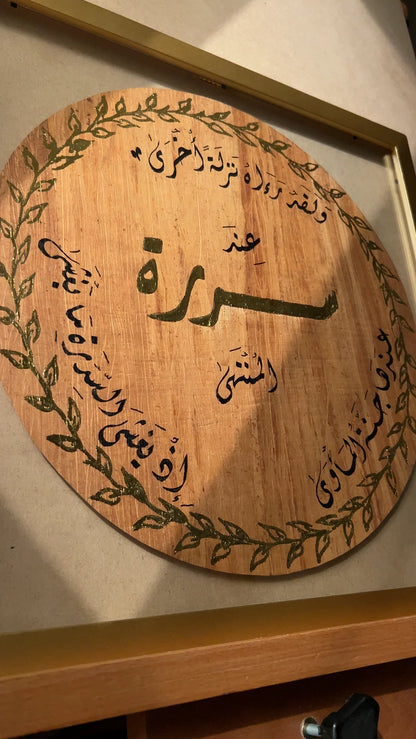 ولقَدْ رَءَاهُ نَزلَةً أُخْرَىٰ
عِندَ
سدرة
المُنتَهَىٰ
عندها جنة المأوىٰ
إِذْ يَغشَى السِّدرَةَ مَا يَغْشَىٰ